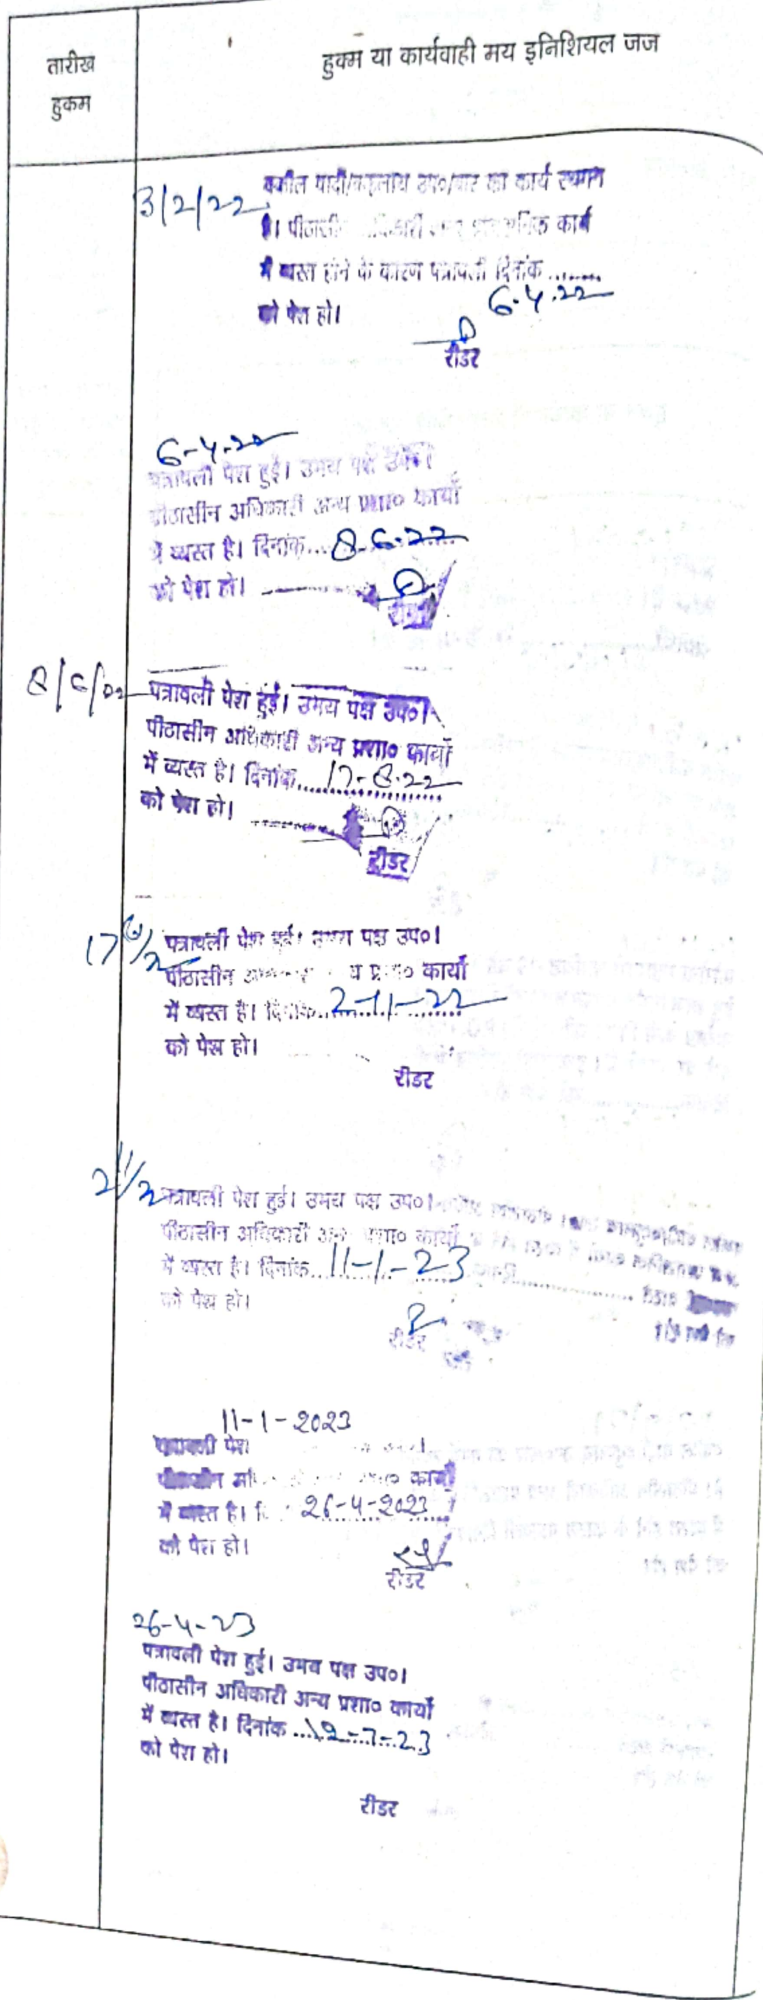 तारीख
हुकम
हुक्म या कार्यवाही मय इनिशियल जज
3/2/22
वकील का कार्य स्थगन
है। कार्य
में व्यस्त होने के कारण पत्रावली दिनांक ........
6.4.22
को पेश हो।
रीडर
6-4-22
पत्रावली पेश हुई। उभय पक्ष उप०।
पीठासीन अधिकारी अन्य प्रशा० कार्यो
में व्यस्त है। दिनांक... 8.6.22
को पेश हो।
रीडर
8/6/22
पत्रावली पेश हुई। उभय पक्ष उप०।
पीठासीन अधिकारी अन्य प्रशा० कार्यो
में व्यस्त है। दिनांक... 17-8-22
को पेश हो।
रीडर
17
पत्रावली पेश हुई। उभय पक्ष उप०।
पीठासीन कार्यो
में व्यस्त है। दिनांक... 2-11-22
को पेश हो।
रीडर
2/11/22
पत्रावली पेश हुई। उभय पक्ष उप०।
पीठासीन अधिकारी अन्य प्रशा० कार्यो
में व्यस्त है। दिनांक... 11-1-23
को पेश हो।
रीडर
11-1-2023
पत्रावली पेश
पीठासीन कार्यो
में व्यस्त है। 26-4-2023
को पेश हो।
रीडर
26-4-23
पत्रावली पेश हुई। उभय पक्ष उप०।
पीठासीन अधिकारी अन्य प्रशा० कार्यो
में व्यस्त है। दिनांक ...12-7-23
को पेश हो।
रीडर